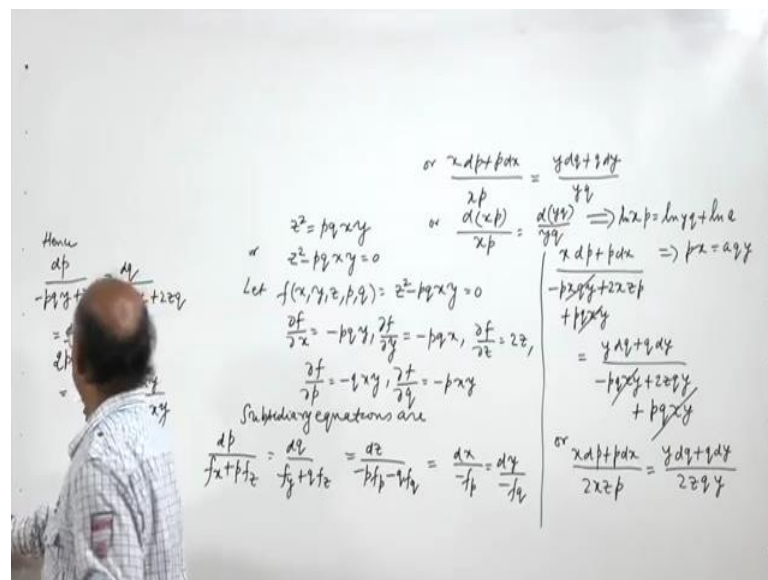 Hence
dp/(-pqy+ = dq/( +2zq
=
=
xy
z² = pqxy
or z²-pqxy=0
Let f(x,y,z,p,q) = z²-pqxy=0
∂f/∂x = -pqy, ∂f/∂y = -pqx, ∂f/∂z = 2z,
∂f/∂p = -qxy, ∂f/∂q = -pxy
Subsidiary equations are
dp/(fx+pfz) = dq/(fy+qfz) = dz/(-pfp-qfq) = dx/(-fp) = dy/(-fq)
or (xdp+pdx)/(xp) = (ydq+qdy)/(yq)
or d(xp)/(xp) = d(yq)/(yq) ⟹ ln xp = ln yq + ln a
⟹ px = aqy
(xdp+pdx)/(-pxqy+2xzp+pqxy)
= (ydq+qdy)/(-pqxy+2zqy+pqxy)
or (xdp+pdx)/(2xzp) = (ydq+qdy)/(2zqy)